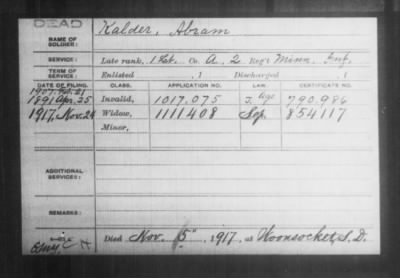 DEAD
NAME OF SOLDIER: Kalder, Abram
SERVICE: Late rank, 1 Lt. Co. A, 2 Reg't Minn. Inf.
TERM OF SERVICE: Enlisted , 1 Discharged , 1
DATE OF FILING. CLASS. APPLICATION NO. LAW. CERTIFICATE NO.
1907
1891 Apr. 25 Invalid, 1017.075 J. Age 790.986
1917, Nov. 24 Widow, 1111408 Sep. 854117
Minor,
ADDITIONAL SERVICES:
REMARKS:
Died Nov. 5", 1917, at Woonsocket, S. D.